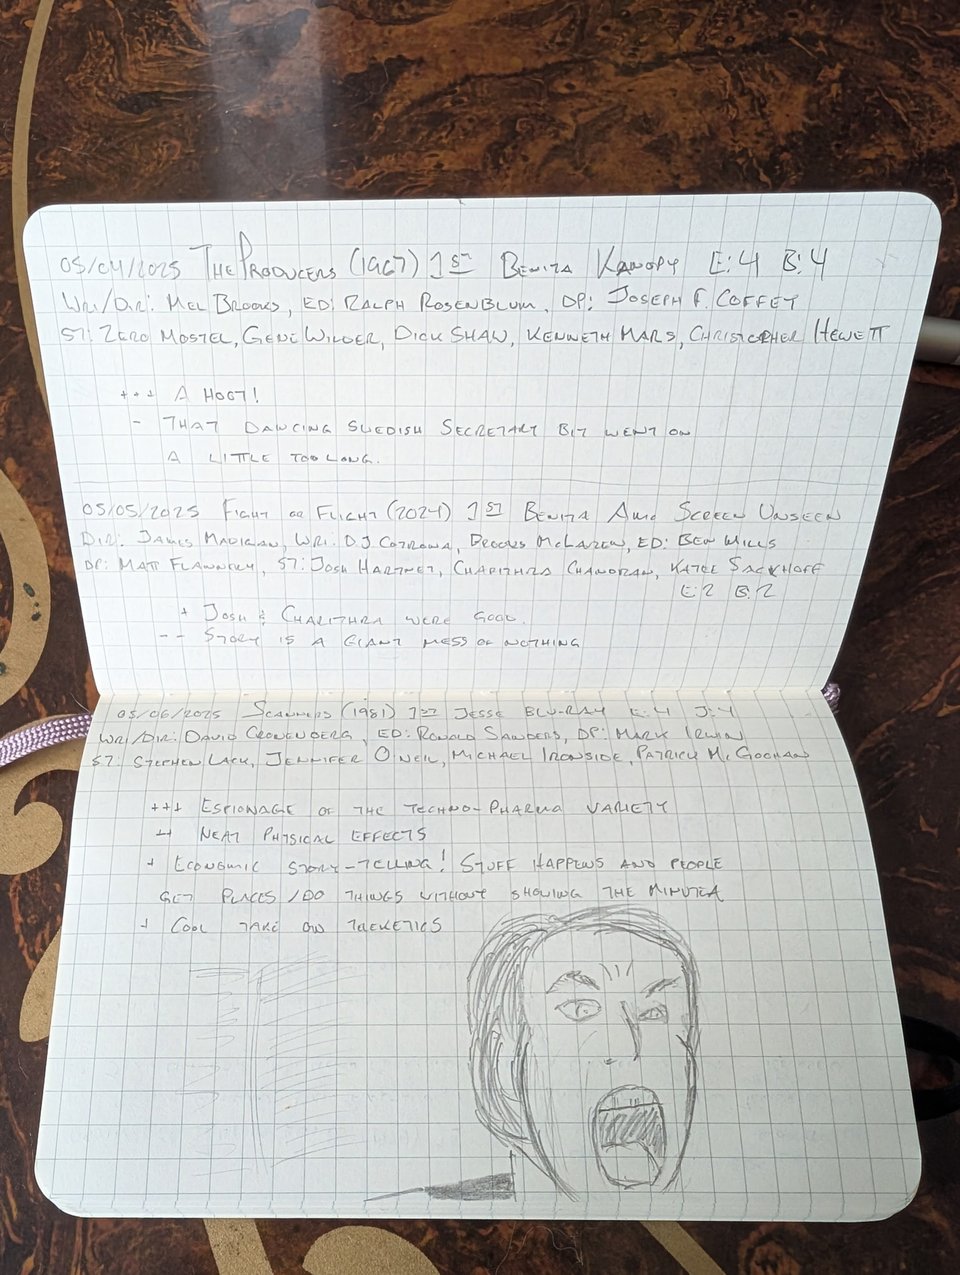 05/04/2025 The Producers (1967) 1st Benita Kanopy E:4 B:4
Wri/Dir: Mel Brooks, ED: Ralph Rosenblum, DP: Joseph F. Coffey
ST: Zero Mostel, Gene Wilder, Dick Shaw, Kenneth Mars, Christopher Hewett
+++ A Hoot!
- That dancing Swedish secretary bit went on
a little too long.
05/05/2025 Fight or Flight (2024) 1st Benita AMC Screen Unseen
Dir: James Madigan, Wri: DJ Cotrona, Brooks McLaren, ED: Ben Mills
DP: Matt Flannery, ST: Josh Hartnet, Charithra Chandran, Katee Sackhoff
E:2 B:2
+ Josh & Charithra were good.
-- Story is a giant mess of nothing
05/06/2025 Scanners (1981) 1st Jesse Blu-Ray E:4 J:4
Wri/Dir: David Cronenberg, ED: Ronald Sanders, DP: Mark Irwin
ST: Stephen Lack, Jennifer O'Neil, Michael Ironside, Patrick McGoohan
+++ Espionage of the techno-pharma variety
++ Neat physical effects
+ Economic story-telling! Stuff happens and people
get places/do things without showing the minutea
+ Cool take on